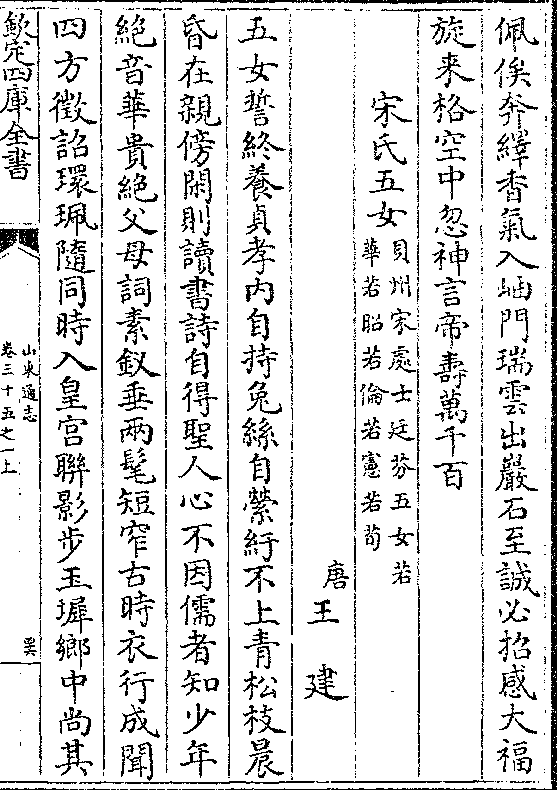 佩俟奔繹香氣入岫門瑞雲出巖石至誠必招感大福
旋来格空中忽神言帝壽萬千百
宋氏五女貝州宋處士廷芬五女若
華若昭若倫若憲若荀
唐王建
五女誓終養貞孝內自持兔絲自縈紆不上青松枝晨
昏在親傍閑則讀書詩自得聖人心不因儒者知少年
絶音華貴絶父母詞素釵垂兩髦短窄古時衣行成聞
四方徵詔環珮隨同時入皇宮聯影步玉墀鄉中尚其
欽定四庫全書
山東通志
卷三十五之一上